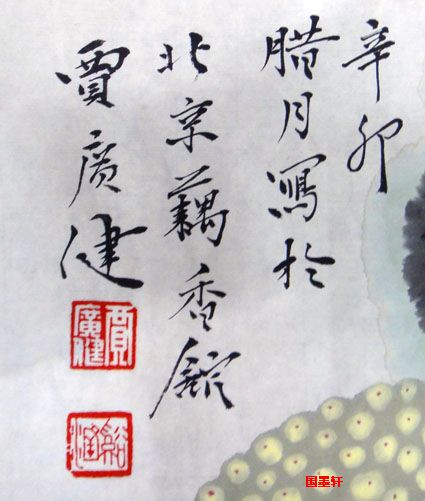 辛卯
腊月寫於
北京藕香館
賈廣健
賈廣健
国墨轩